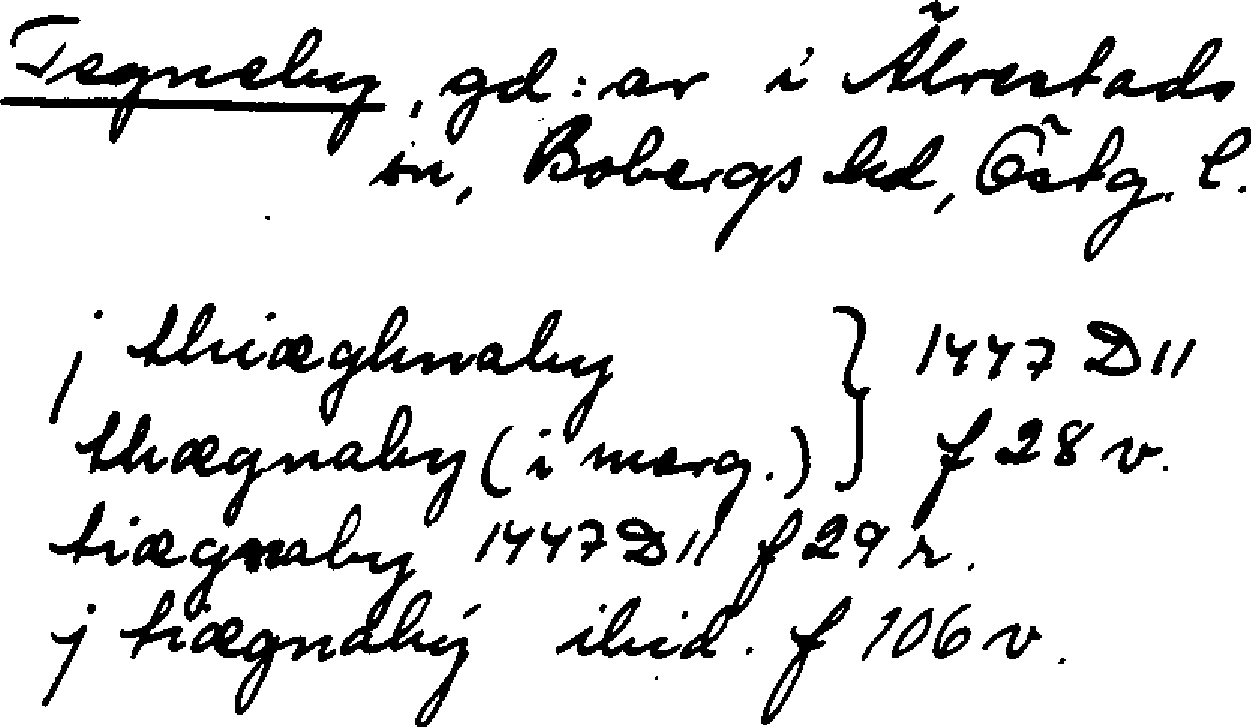 Tegneby, gd:ar i Älvestads
sn, Bobergs hd, Östg. l.
j thiæghnaby } 1447 D 11
thægnaby (i marg.) } f 28 v.
tiægnaby 1447 D 11 f 29 r.
j tiægnabý ibid. f 106 v.